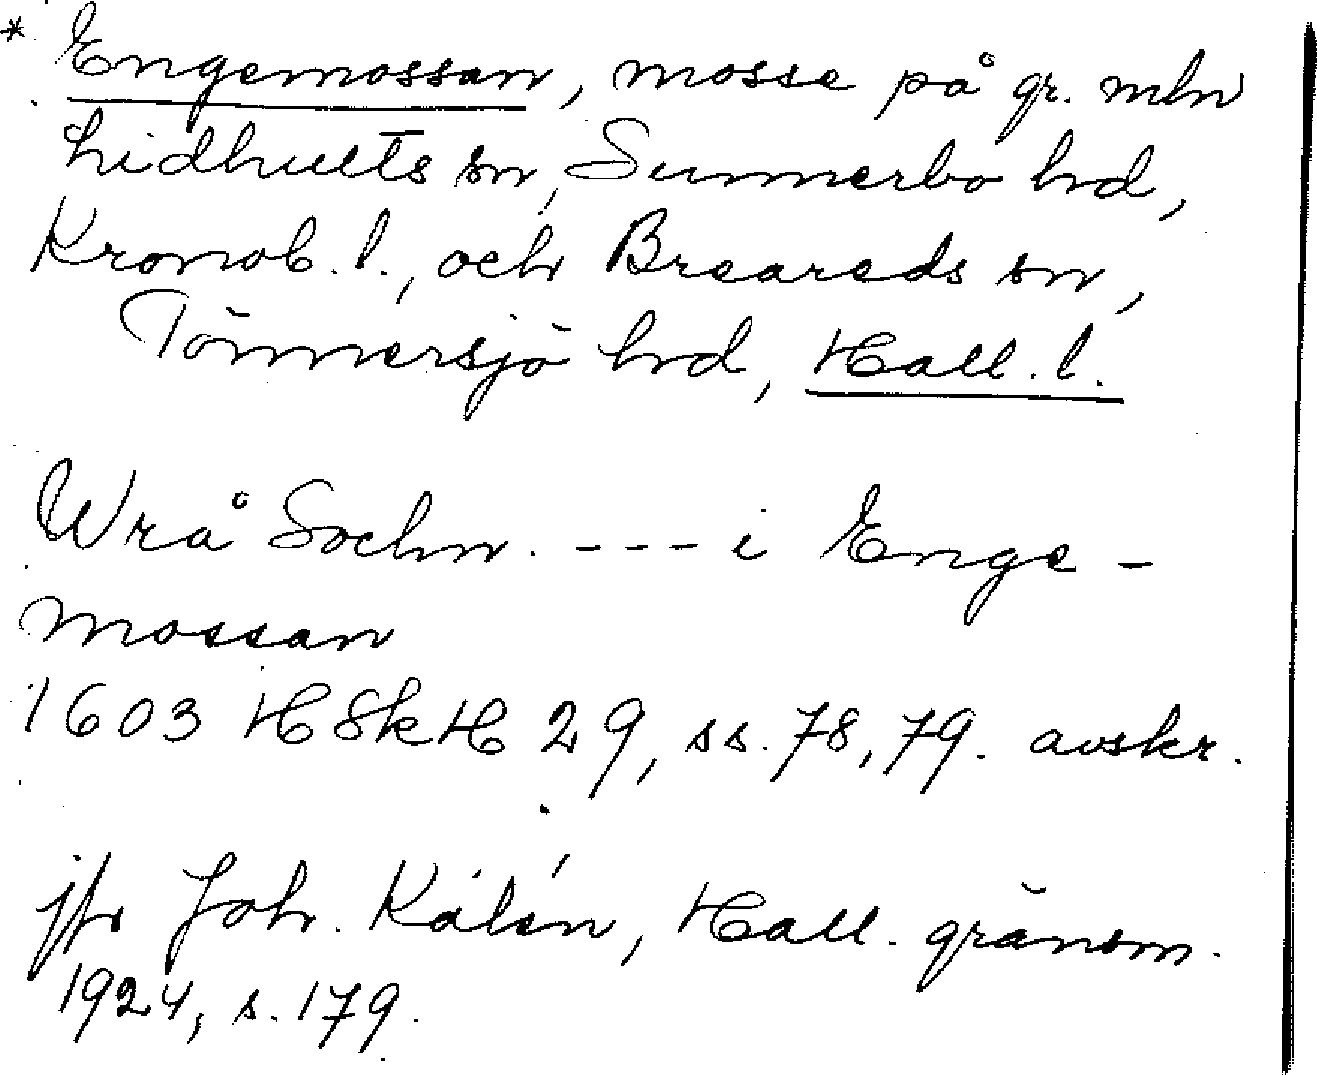 * Engemossan, mosse på gr. mln
Lidhults sn, Sunnerbo hd,
Kronob. l., och Breareds sn,
Tönnersjö hd, Hall. l.
Wrå Sochn. - - - i Enge-
mossan
1603 HSkH 29, ss. 78, 79. avskr.
jfr Joh. Kalén, Hall. gränsm.
1924, s. 179.